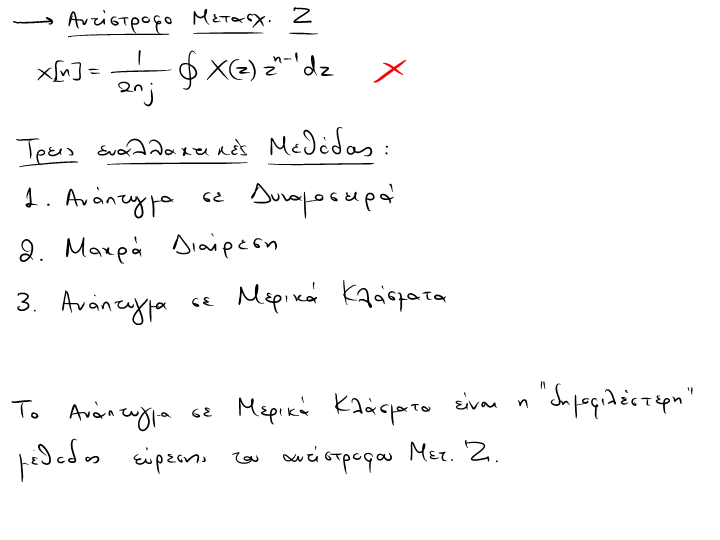 → Αντίστροφο Μετασχ. Z
x[n] = 1/2πj ∮ X(z) z^{n-1} dz ✗
Τρεις εναλλακτικές Μεθόδοι:
1. Ανάπτυγμα σε Δυναμοσειρά
2. Μακρά Διαίρεση
3. Ανάπτυγμα σε Μερικά Κλάσματα
Το Ανάπτυγμα σε Μερικά Κλάσματα είναι η "δημοφιλέστερη"
μέθοδος εύρεσης του αντίστροφου Μετ. Z.